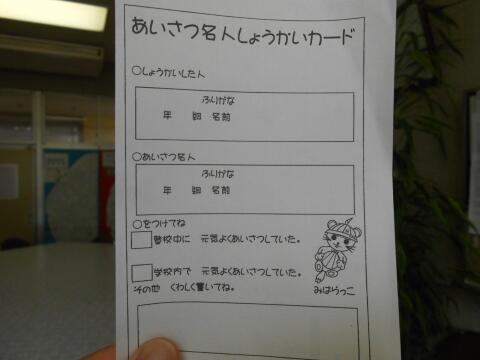 あいさつ名人しょうかいカード
○しょうかいした人
ふりがな
年 組 名前
○あいさつ名人
ふりがな
年 組 名前
○をつけてね
登校中に 元気よくあいさつしていた。
学校内で 元気よくあいさつしていた。
その他 くわしく書いてね。
みはらっこ